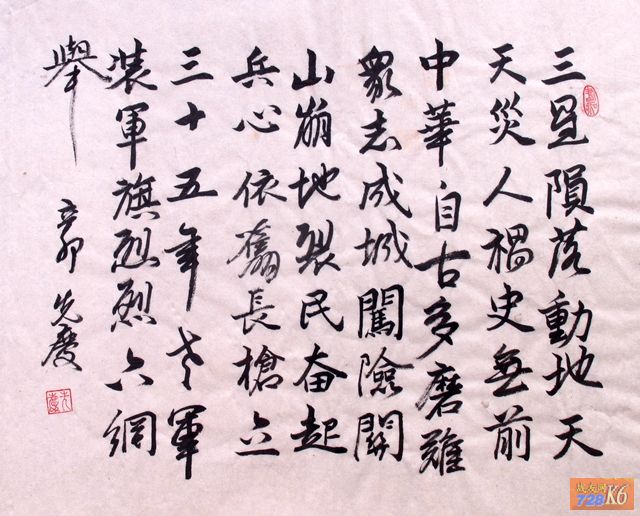 三星隕落動地天
天災人禍史無前
中華自古多磨難
眾志成城闖險關
山崩地裂民奋起
兵心依舊長槍立
三十五年老軍
裝軍旗烈烈六綱
舉
辛卯 先慶
战友网
728K6